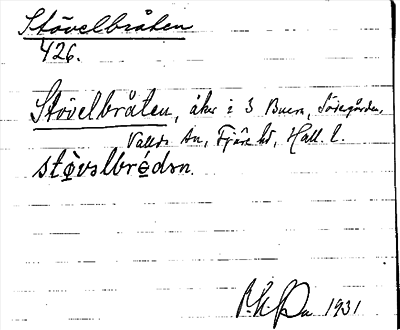 Stövelbråten
426.
Stövelbråten, åker i 3 Buera, Sörgården,
Vallda sn, Fjäre hd, Hall. l.
stø̀vəlbrǿdən.
1931